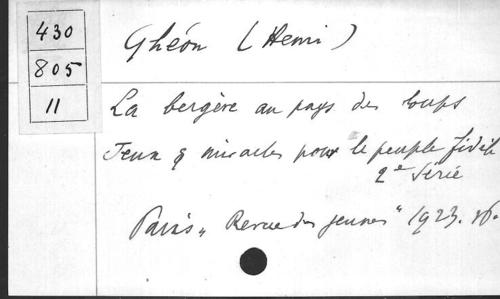 430
805
11
Ghéon (Henri)
La bergère au pays des loups
Jeux & miracles pour le peuple fidèle
2e Série
Paris „ Revue des jeunes " 1923. 16.